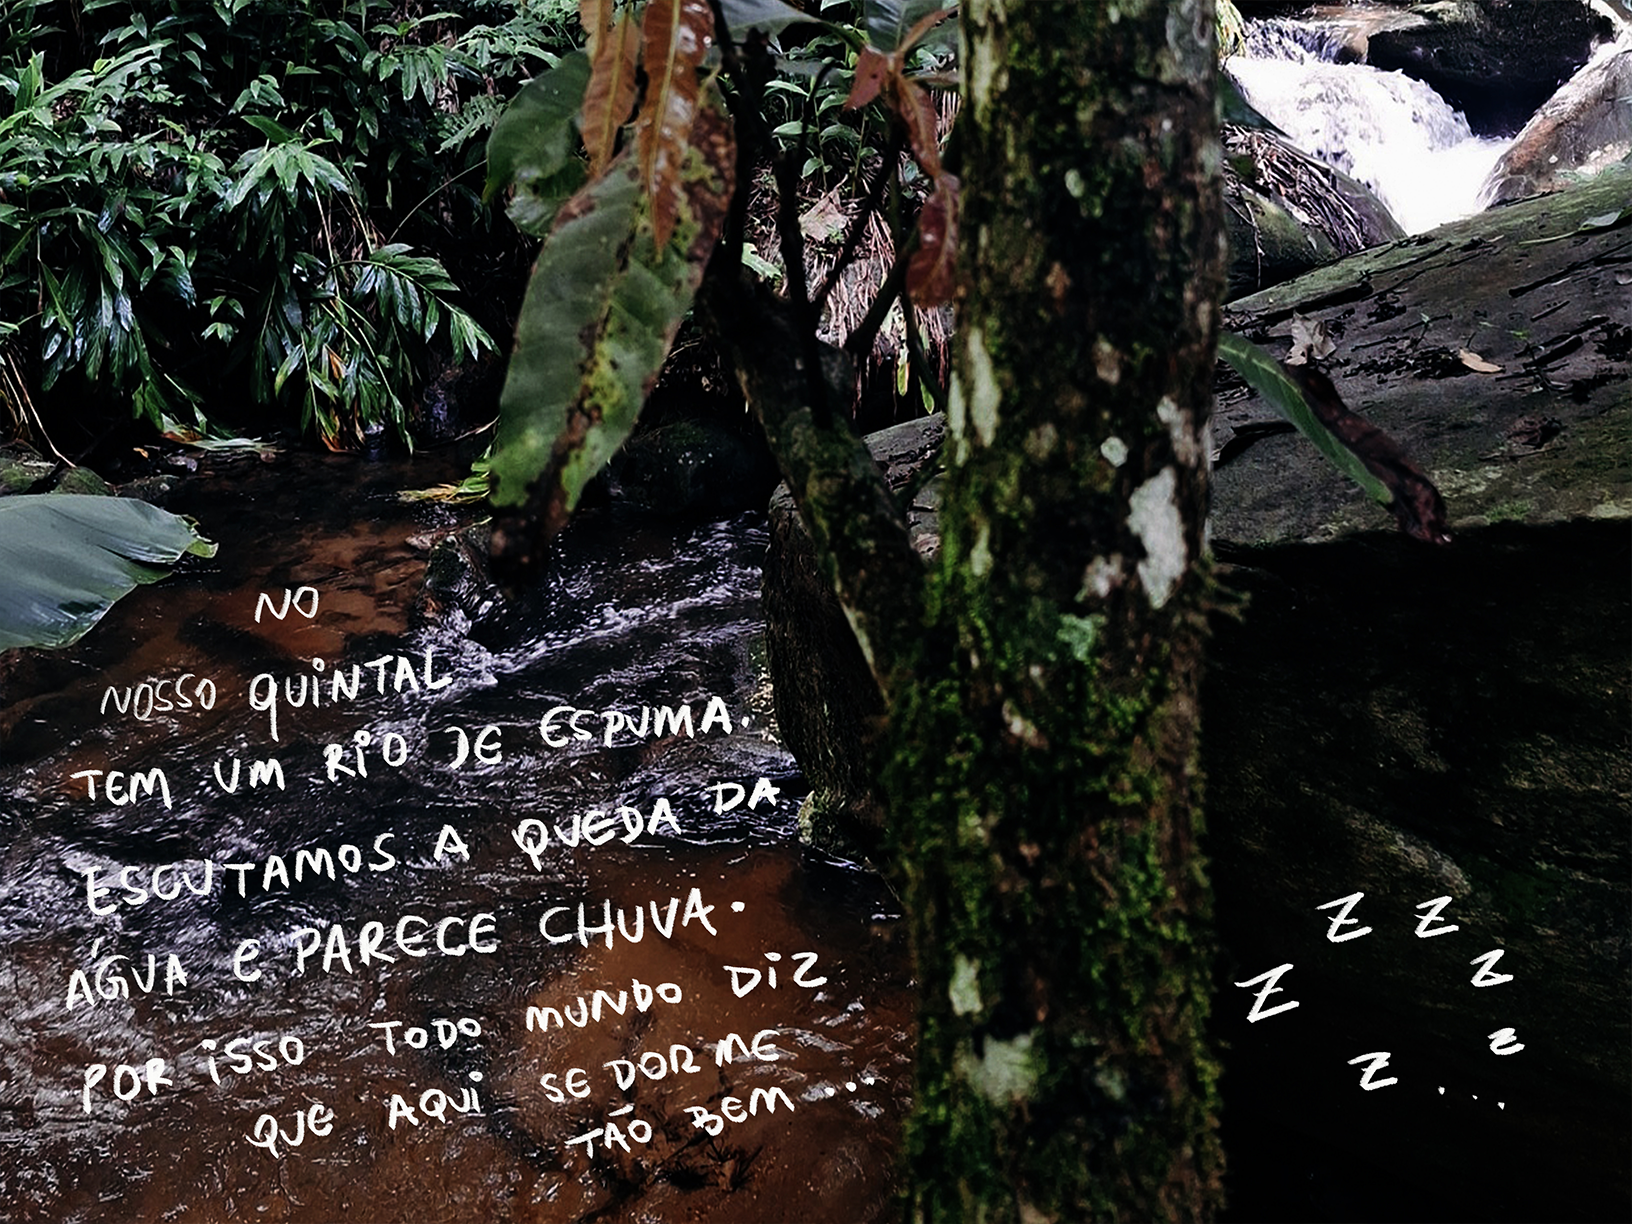 NO
NOSSO QUINTAL
TEM UM RIO DE ESPUMA.
ESCUTAMOS A QUEDA DA
ÁGUA E PARECE CHUVA.
POR ISSO TODO MUNDO DIZ
QUE AQUI SE DORME
TÃO BEM...
Z Z
Z Z
Z Z...